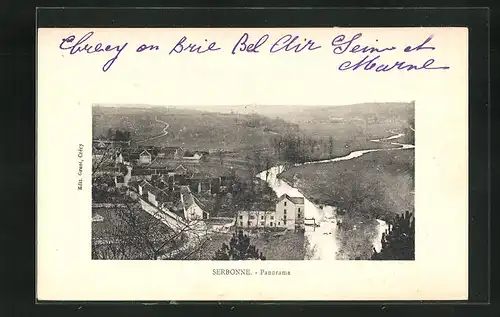 Crécy en Brie Bel Air Seine et
Marne
Edit. Grant, Crécy
SERBONNE. - Panorama